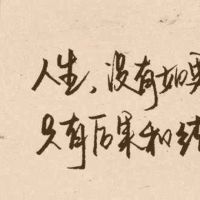 人生、没有如
只有后果和结